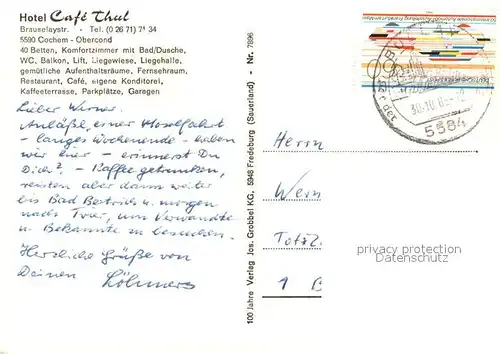 Hotel Café Thul
Brauselaystr. - Tel. (0 26 71) 71 34
5590 Cochem - Obercond
40 Betten, Komfortzimmer mit Bad/Dusche,
WC, Balkon, Lift, Liegewiese, Liegehalle,
gemütliche Aufenthaltsräume, Fernsehraum,
Restaurant, Café, eigene Konditorei,
Kaffeeterrasse, Parkplätze, Garagen
Lieber Werner.
Anläßl. einer Moselfahrt
- langes Wochenende - haben
wir hier - erinnerst Du
Dich? - Kaffee getrunken,
reisten aber dann weiter
bis Bad Bertrich u. morgen
nach Trier, um Verwandte
u. Bekannte zu besuchen.
Herzliche Grüße von
Deinen Löhmers
100 Jahre Verlag Jos. Grobbel KG. 5948 Fredeburg (Sauerland) - Nr. 7896
Herrn
Wern
Totzl.
1 B
5584
privacy protection
AnsichtskartenCenter